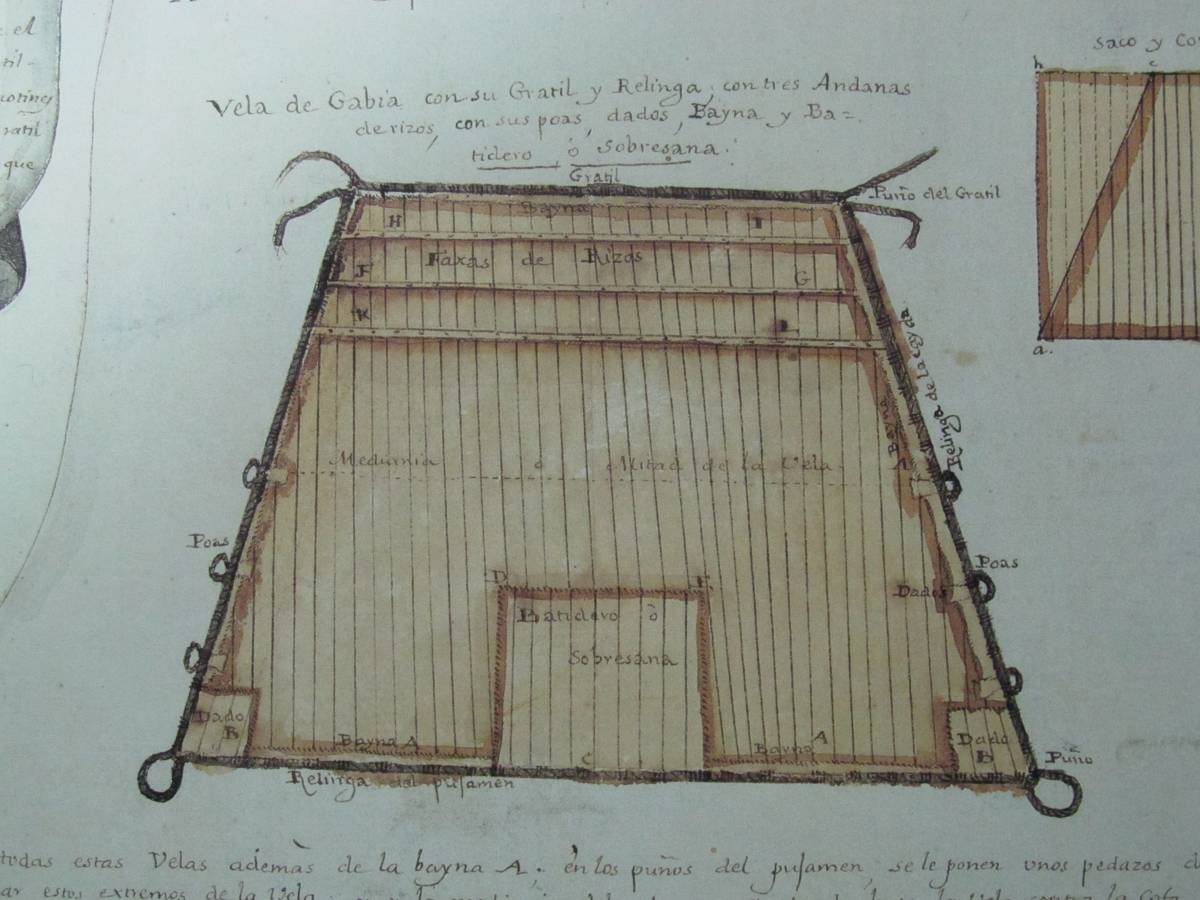 el
til-
ratil
que
Vela de Gabia con su Gratil y Relinga, con tres Andanas
de rizos, con sus poas, dados, Bayna y Ba=
tidero, ò Sobresana.
Gratil
Puño del Gratil
Bayna
H
I
Faxas de Rizos
F
G
K
Relinga de la cayda
Bayna
A
Medunia ò Mitad de la Vela.
Poas
Poas
Dados
D
E
Batidero ò
Sobresana
Dado
B
Bayna A
Bayna A
C
Dado
B
Puño
Relinga del pujamen
saco y
h
c
a.
todas estas Velas ademàs de la bayna A; en los puños del pujamen, se le ponen unos pedazos
estos extremos de la Vela